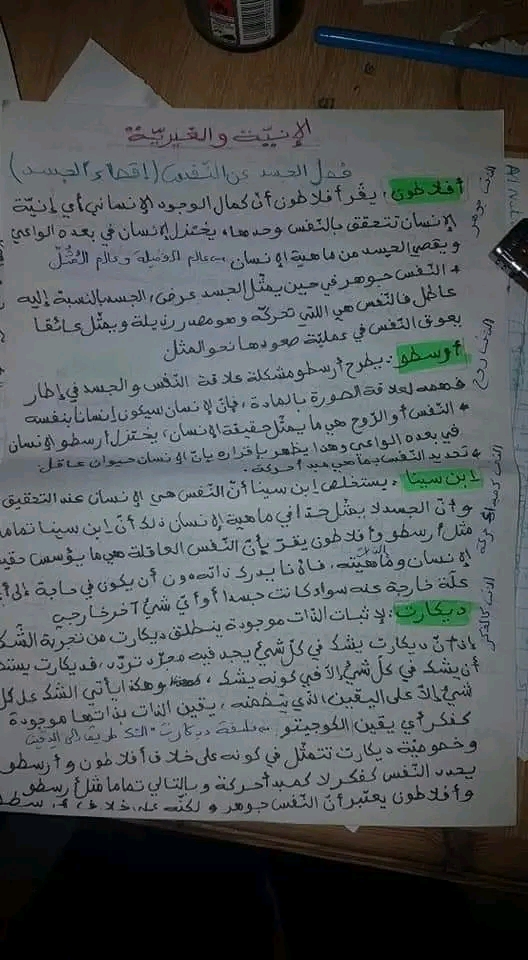 الإنيّة والغيريّة
فصل الجسد عن النّفس (إقصاء الجسد)
أفلاطون: يقرّ أفلاطون أنّ كمال الوجود الإنساني أي إنيّة
الإنسان تتحقق بالنّفس وحدها، يختزل الإنسان في بعده الواعي
ويقصي الجسد من ماهية الإنسان عالم الفضيلة وعالم المُثُل
* النّفس جوهر في حين يمثّل الجسد عرض، الجسد بالنسبة إليه
عاطل فالنّفس هي اللّتي تحرّكه وهو مصدر رذيلة ويمثّل عائقا
يعوق النّفس في عمليّة صعودها نحو المثل
أرسطو: يطرح أرسطو مشكلة علاقة النّفس والجسد في إطار
فهمه لعلاقة الصورة بالمادة، فإنّ الإنسان سيكون إنسانا بنفسه
* النّفس أو الرّوح هي ما يمثّل حقيقة الإنسان، يختزل أرسطو الإنسان
في بعده الواعي وهذا يظهر بإقراره بأنّ الإنسان حيوان عاقل
* تحديد النّفس بما هي مبدأ حركة.
ابن سينا: يستخلص ابن سينا أنّ النّفس هي الإنسان عند التحقيق
وأنّ الجسد لا يمثّل حدّا في ماهية الإنسان ذلك أنّ ابن سينا تماما
مثل أرسطو وأفلاطون يقرّ بأنّ النّفس العاقلة هي ما يؤسس
الإنسان وماهيّته، فالأنا يدرك ذاته دون أن يكون في حاجة إلى
علّة خارجة عنه سواء كانت جسدا أو أيّ شيء آخر خارجي
ديكارت: لإثبات الذات موجودة ينطلق ديكارت من تجربة الشّك
إذ أنّ ديكارت يشك في كلّ شيء يجد فيه مجرّد تردّد، فديكارت
أن يشك في كلّ شيء إلاّ في كونه يشك، وهكذا يأتي الشك على كل
شيء إلاّ على اليقين الذي يتضمنه، يقين الذات بذاتها موجودة
كفكر أي يقين الكوجيتو فلسفة ديكارت "الشك طريقه إلى اليقين"
وخصوصيّة ديكارت تتمثّل في كونه على خلاف أفلاطون وأرسطو
يحدد النّفس كفكر لا كمبدأ حركة وبالتالي تماما مثل أرسطو
وأفلاطون يعتبر أنّ النّفس جوهر ولكنّه على خلاف
الذات جوهر
الذات روح
الذات كمبدأ حركة
الذات كالفكر